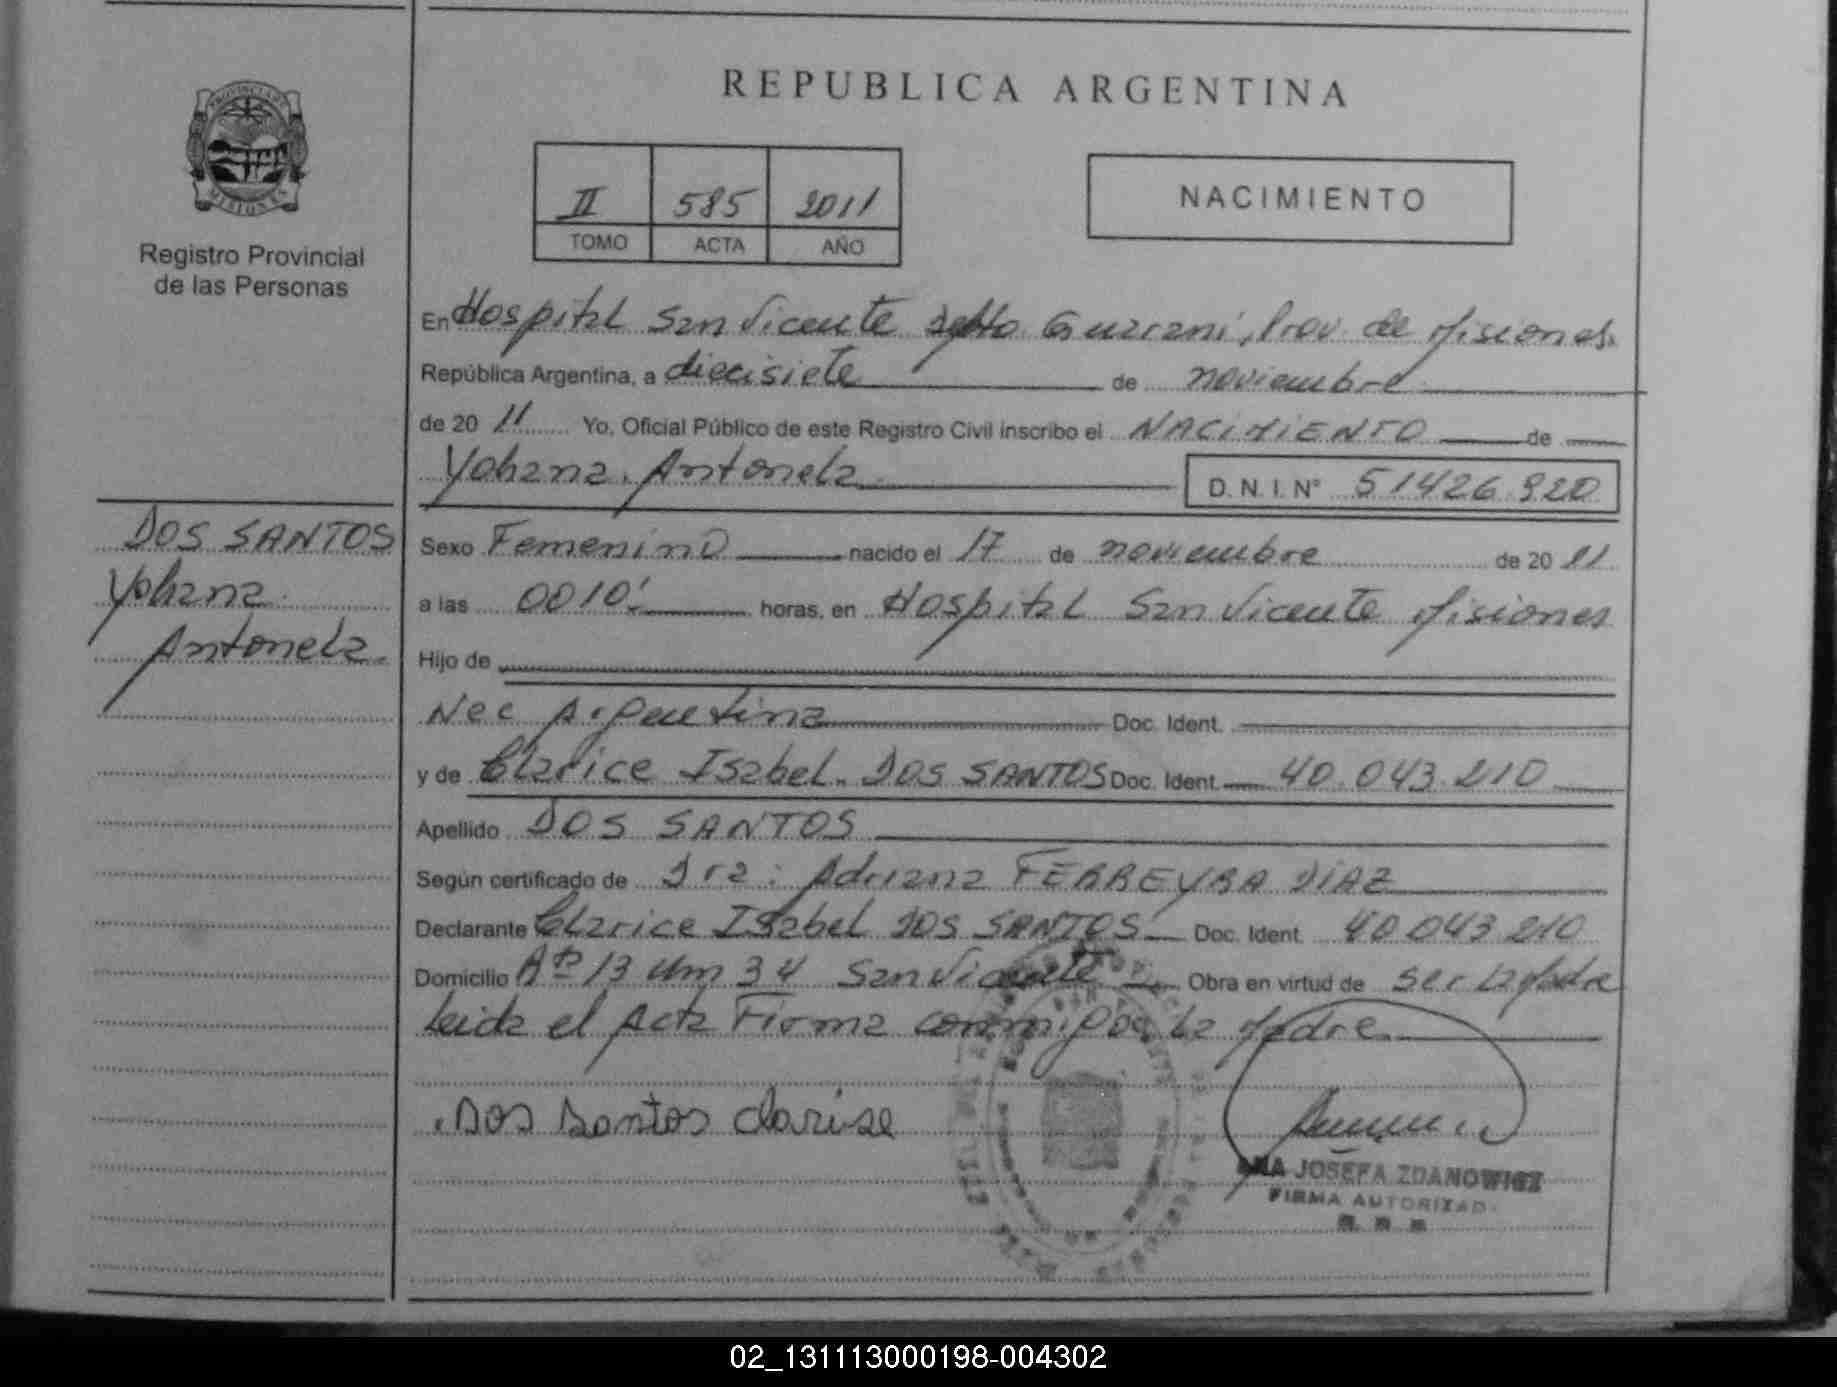 REPUBLICA ARGENTINA
PROVINCIA DE
MISIONES
Registro Provincial
de las Personas
II 585 2011
TOMO ACTA AÑO
NACIMIENTO
En Hospital San Vicente Depto Guarani, Prov. de Misiones.
República Argentina, a diecisiete de noviembre
de 20 11 Yo, Oficial Público de este Registro Civil inscribo el NACIMIENTO de
Yohana Antonela D.N.I. N° 51426.920
DOS SANTOS
Yohana
Antonela
Sexo Femenino nacido el 17 de noviembre de 20 11
a las 0010' horas, en Hospital San Vicente Misiones
Hijo de
Nac Argentina Doc. Ident.
y de Clarice Isabel DOS SANTOS Doc. Ident. 40.043.210
Apellido DOS SANTOS
Según certificado de Dra: Adriana FERREYRA DIAZ
Declarante Clarice Isabel DOS SANTOS Doc. Ident. 40.043.210
Domicilio 13 Km 34 San Vicente Obra en virtud de ser la Madre
leida el Acta Firma conmigo la Madre
Dos Santos Clarise
ANA JOSEFA ZDANOWICZ
FIRMA AUTORIZAD
02_131113000198-004302